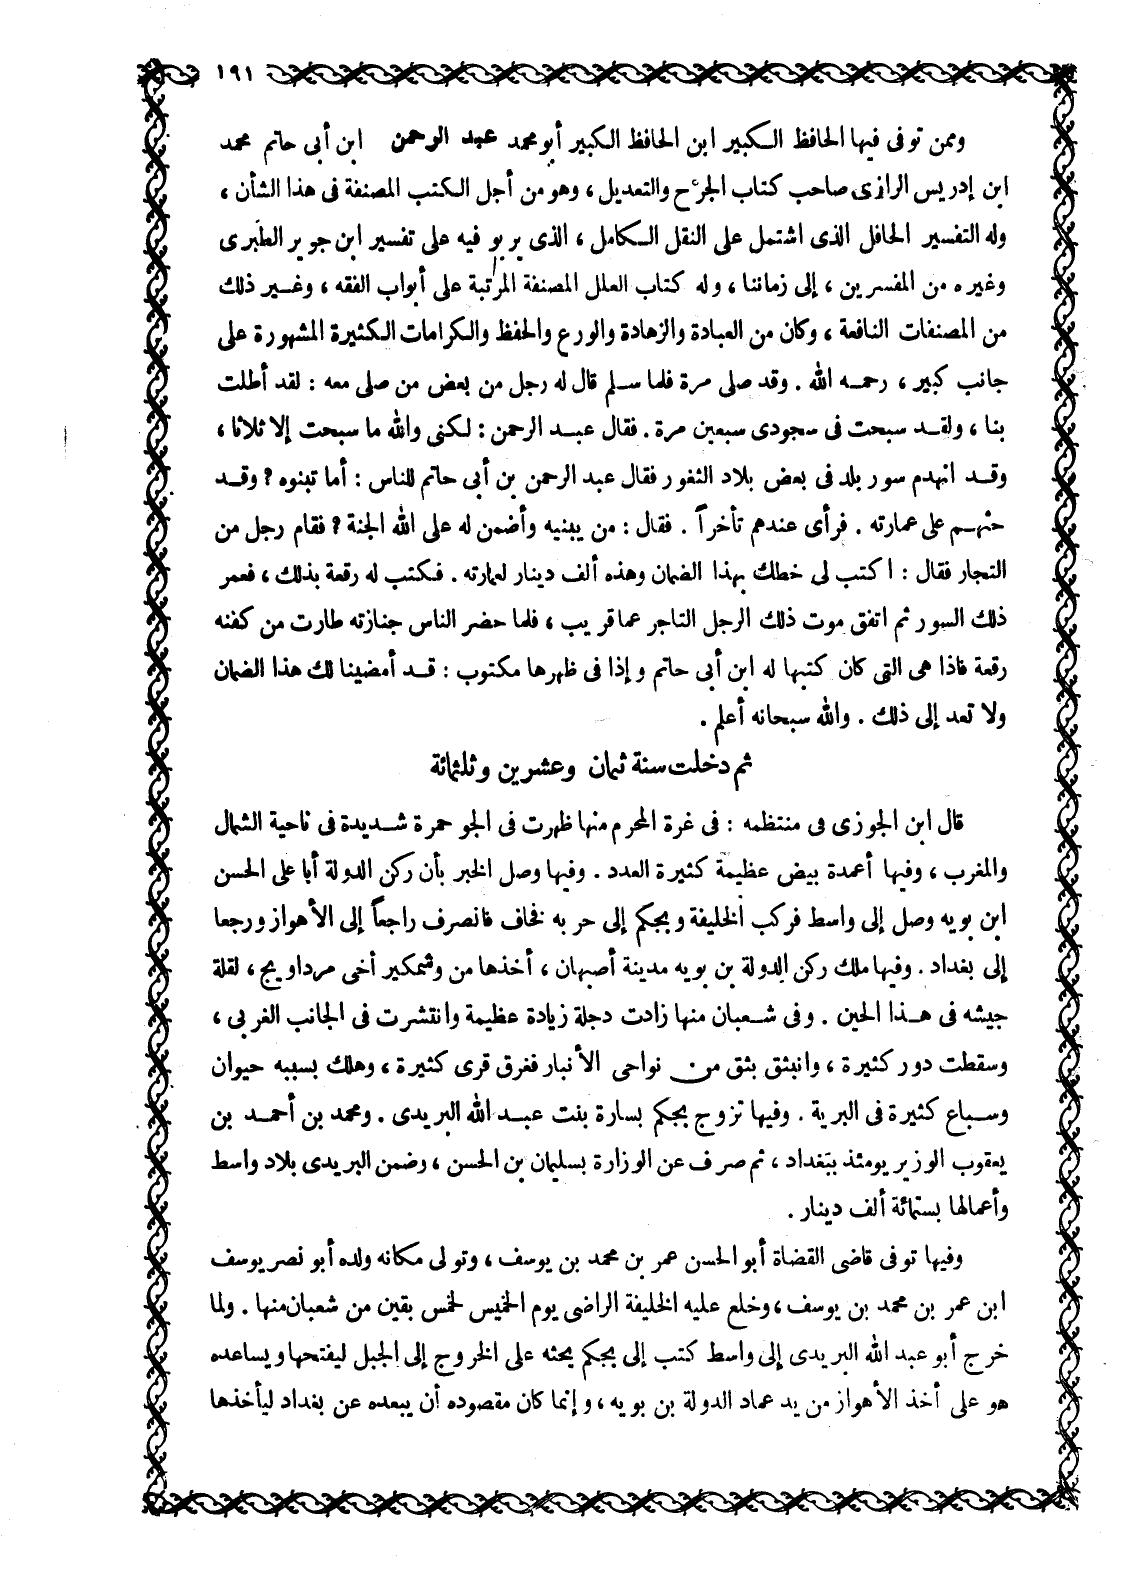 ١٩١
وممن توفى فيها الحافظ الكبير ابن الحافظ الكبير أبو محمد عبد الرحمن ابن أبى حاتم محمد
ابن إدريس الرازى صاحب كتاب الجرح والتعديل ، وهو من أجل الكتب المصنفة فى هذا الشأن ،
وله التفسير الحافل الذى اشتمل على النقل الكامل ، الذى يربو فيه على تفسير ابن جرير الطبرى
وغيره من المفسرين ، إلى زماننا ، وله كتاب العلل المصنفة المرتبة على أبواب الفقه ، وغير ذلك
من المصنفات النافعة ، وكان من العبادة والزهادة والورع والحفظ والكرامات الكثيرة المشهورة على
جانب كبير ، رحمه الله . وقد صلى مرة فلما سلم قال له رجل من بعض من صلى معه : لقد أطلت
بنا ، ولقد سبحت فى سجودى سبعين مرة . فقال عبد الرحمن : لكنى والله ما سبحت إلا ثلاثا ،
وقد انهدم سور بلد فى بعض بلاد الثغور فقال عبد الرحمن بن أبى حاتم للناس : أما تبنوه ؟ وقد
حثهم على عمارته . فرأى عندهم تأخراً . فقال : من يبنيه وأضمن له على الله الجنة ؟ فقام رجل من
التجار فقال : اكتب لى خطك بهذا الضمان وهذه ألف دينار لعمارته . فكتب له رقعة بذلك ، فعمر
ذلك السور ثم اتفق موت ذلك الرجل التاجر عما قريب ، فلما حضر الناس جنازته طارت من كفنه
رقعة فاذا هى التى كان كتبها له ابن أبى حاتم وإذا فى ظهرها مكتوب : قد أمضينا لك هذا الضمان
ولا تعد إلى ذلك . والله سبحانه أعلم .
ثم دخلت سنة ثمان وعشرين وثلثمائة
قال ابن الجوزى فى منتظمه : فى غرة المحرم منها ظهرت فى الجو حمرة شديدة فى ناحية الشمال
والمغرب ، وفيها أعمدة بيض عظيمة كثيرة العدد . وفيها وصل الخبر بأن ركن الدولة أبا على الحسن
ابن بويه وصل إلى واسط فركب الخليفة وبجكم إلى حربه فخاف فانصرف راجعاً إلى الأهواز ورجعا
إلى بغداد . وفيها ملك ركن الدولة بن بويه مدينة أصبهان ، أخذها من وشمكير أخى مرداويج ، لقلة
جيشه فى هذا الحين . وفى شعبان منها زادت دجلة زيادة عظيمة وانتشرت فى الجانب الغربى ،
وسقطت دور كثيرة ، وانبثق بثق من نواحى الأنبار فغرق قرى كثيرة ، وهلك بسببه حيوان
وسباع كثيرة فى البرية . وفيها تزوج بجكم بسارة بنت عبد الله البريدى . ومحمد بن أحمد بن
يعقوب الوزير يومئذ ببغداد ، ثم صرف عن الوزارة بسليمان بن الحسن ، وضمن البريدى بلاد واسط
وأعمالها بستمائة ألف دينار .
وفيها توفى قاضى القضاة أبو الحسن عمر بن محمد بن يوسف ، وتولى مكانه ولده أبو نصر يوسف
ابن عمر بن محمد بن يوسف ، وخلع عليه الخليفة الراضى يوم الخميس لخمس بقين من شعبان منها . ولما
خرج أبو عبد الله البريدى إلى واسط كتب إلى بجكم يحثه على الخروج إلى الجبل ليفتحها ويساعده
هو على أخذ الأهواز من يد عماد الدولة بن بويه ، وإنما كان مقصوده أن يبعده عن بغداد ليأخذها